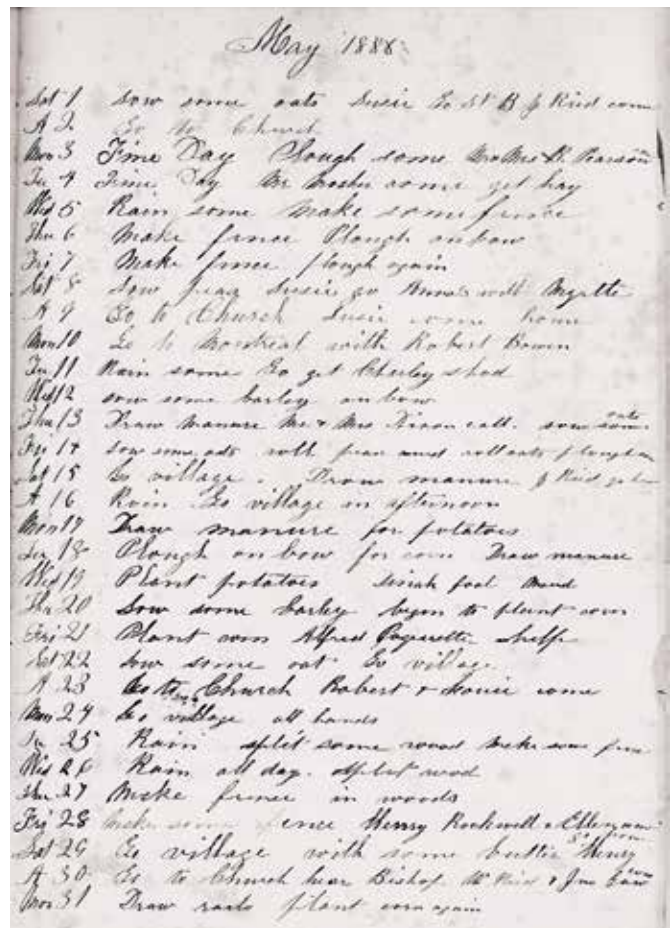 May 1888
Sat 1 Sow some oats Susie Go St B J Ried come
A 2 Go to Church
Mon 3 Fine Day Plough some Mr Mrs R. Pearson
Tu 4 Fine Day Mr Mosher come get hay
Wed 5 Rain some make some fence
Thu 6 Make fence Plough on bow
Fri 7 Make fence plough again
Sat 8 Sow peas Susie go with
A 9 Go to Church Susie come home
Mon 10 Go to Montreal with Robert Bowen
Tu 11 Rain some Go get Charley shod
Wed 12 sow some barley on bow
Thu 13 Draw manure Mr & Mrs call. sow some oats
Fri 14 sow some oats roll peas and roll oats plough
Sat 15 Go village. Draw manure J Ried
A 16 Rain Go village in afternoon
Mon 17 Draw manure for potatoes
Tu 18 Plough on bow for corn Draw manure
Wed 19 Plant potatoes foal
Thu 20 Sow some barley begin to plant corn
Fri 21 Plant corn Alfred help
Sat 22 Sow some oat Go village
A 23 Go to Church Robert & come
Mon 24 Go village all hands
Tu 25 Rain split some wood make some fence
Wed 26 Rain all day. Split wood
Thu 27 Make fence in woods
Fri 28 Make some fence Henry Rockwell & Ellen
Sat 29 Go village with some butter Henry
A 30 Go to Church hear Bishop. W Ried & Jno
Mon 31 Draw rails plant corn again